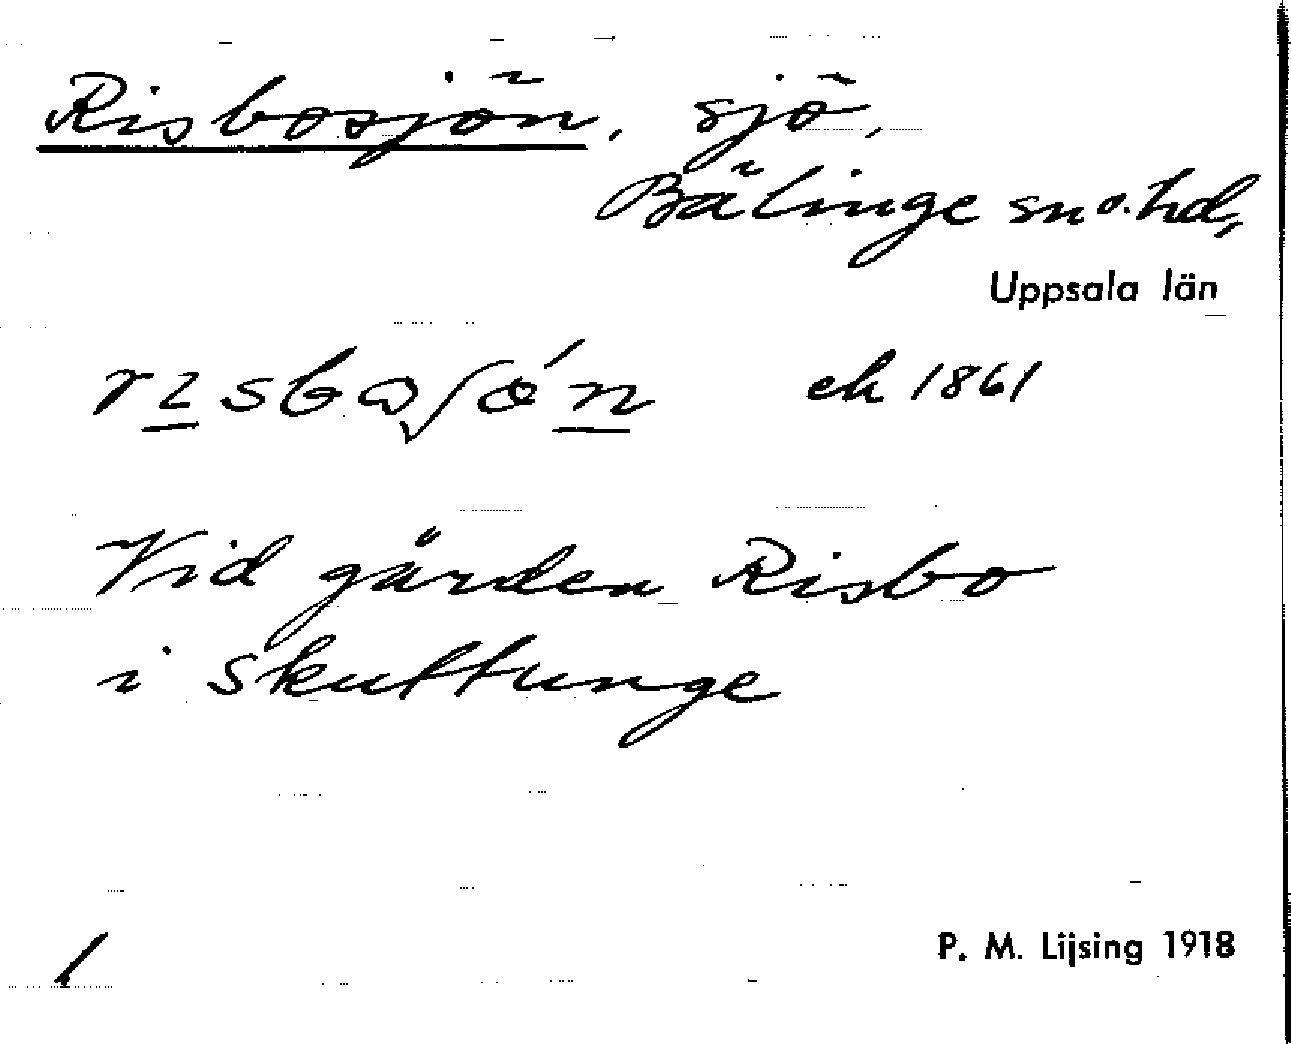 Risbosjön, sjö,
Bälinge sn o. hd,
Uppsala län
ek 1861
Vid gården Risbo
i Skuttunge
1
P. M. Lijsing 1918